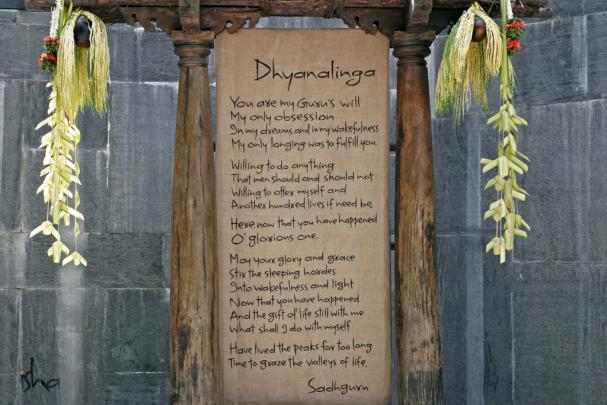 Dhyanalinga
You are my Guru's will
My only obsession
In my dreams and in my wakefulness
My only longing was to fulfill you
Willing to do anything
That men should and should not
Willing to offer myself and
Another hundred lives if need be
Here now that you have happened
O' glorious one.
May your glory and grace
Stir the sleeping hordes
Into wakefulness and light
Now that you have happened
And the gift of life still with me
What shall I do with myself
Have lived the peaks for too long
Time to graze the valleys of life.
Sadhguru
isha